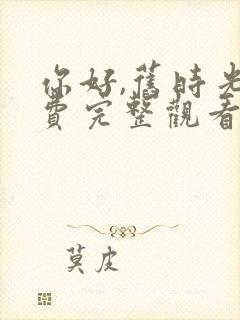 你好,舊時光
費完整觀看
莫皮